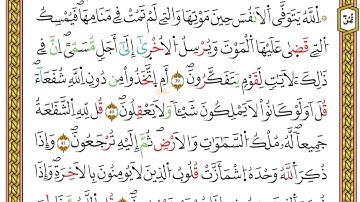 اَللّٰهُ يَتَوَفَّى الْاَنْفُسَ حِينَ مَوْتِهَا وَالَّتِي لَمْ تَمُتْ فِي مَنَامِهَا فَيُمْسِكُ
الَّتِي قَضٰى عَلَيْهَا الْمَوْتَ وَيُرْسِلُ الْاُخْرٰٓى اِلٰٓى اَجَلٍ مُسَمًّىۜ اِنَّ فِي
ذٰلِكَ لَاٰيَاتٍ لِقَوْمٍ يَتَفَكَّرُونَ ﴿٤٢﴾ اَمِ اتَّخَذُوا مِنْ دُونِ اللّٰهِ شُفَعَٓاءَۜ
قُلْ اَوَلَوْ كَانُوا لَا يَمْلِكُونَ شَيْـًٔا وَلَا يَعْقِلُونَ ﴿٤٣﴾ قُلْ لِلّٰهِ الشَّفَاعَةُ
جَمِيعًاۜ لَهُ مُلْكُ السَّمٰوَاتِ وَالْاَرْضِۜ ثُمَّ اِلَيْهِ تُرْجَعُونَ ﴿٤٤﴾ وَاِذَا
ذُكِرَ اللّٰهُ وَحْدَهُ اشْمَاَزَّتْ قُلُوبُ الَّذِينَ لَا يُؤْمِنُونَ بِالْاٰخِرَةِۚ وَاِذَا